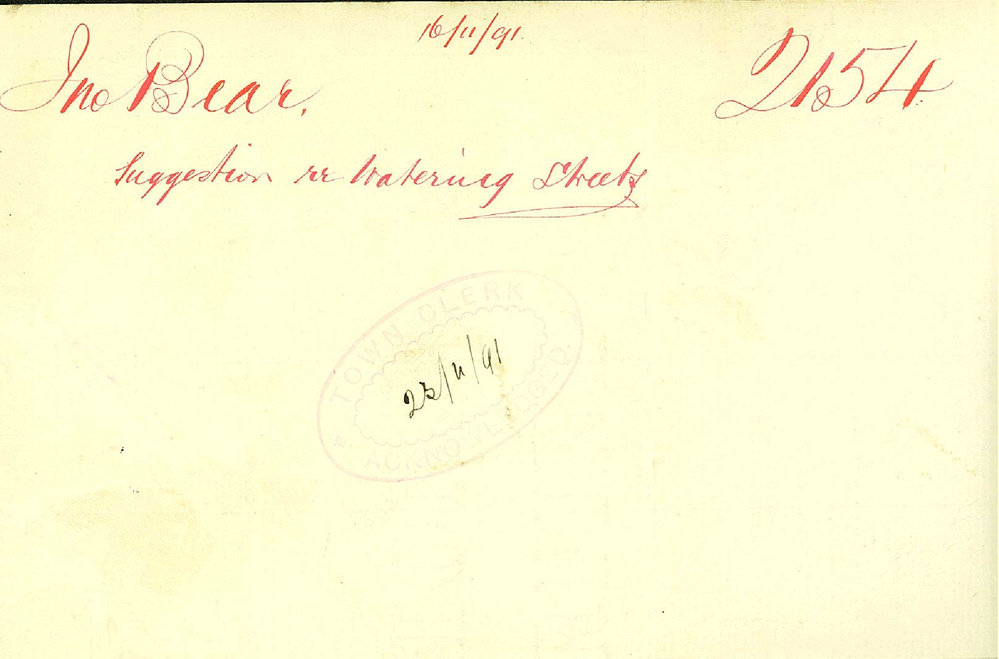 16/11/91.
Jno Bear. 2154
Suggestion re Watering Streets
TOWN CLERK
23/11/91
ACKNOWLEDGED.